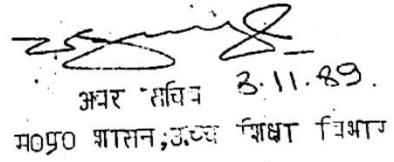 अवर सचिव 3.11.89.
म०प्र० शासन,उच्च शिक्षा विभाग